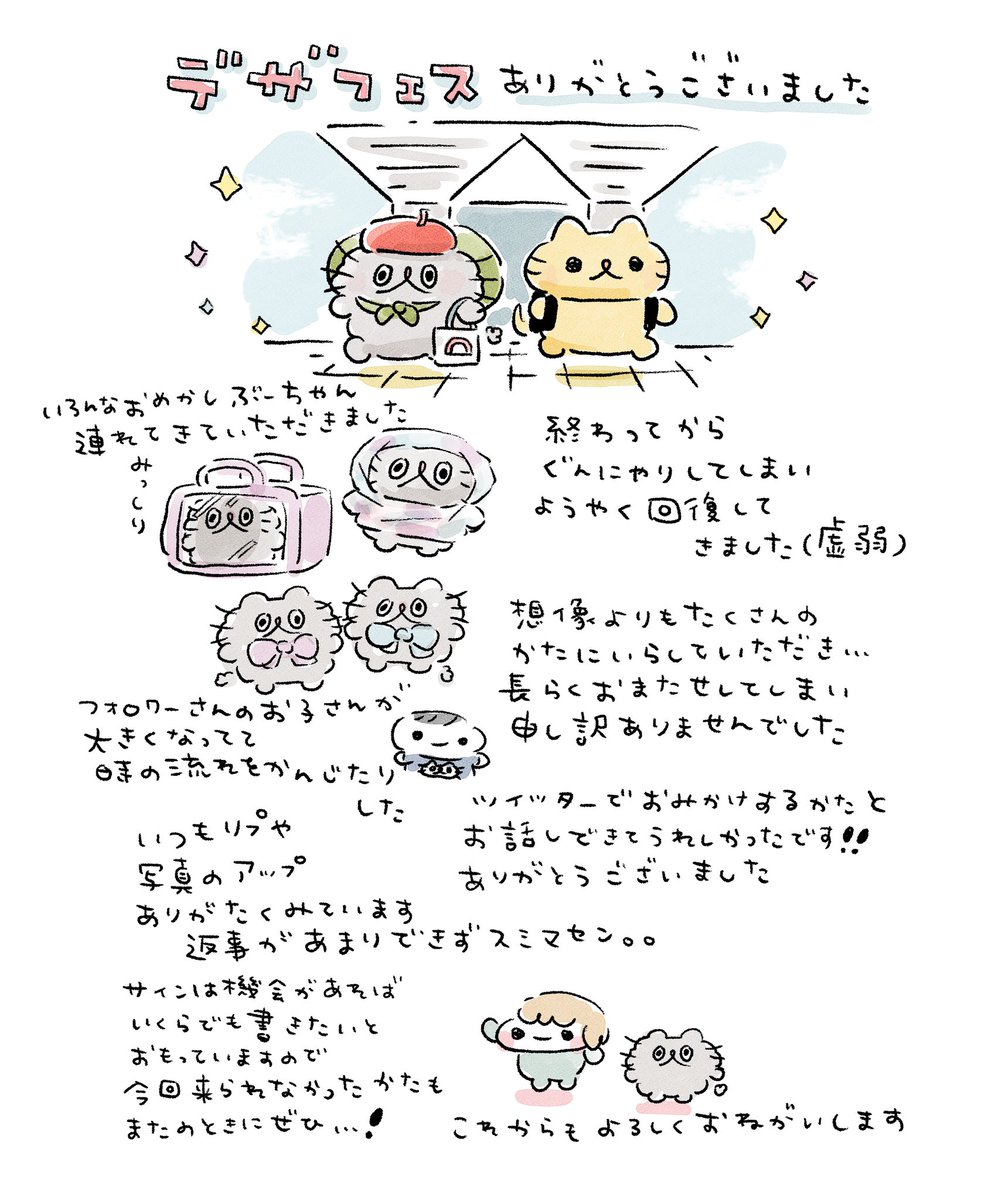 デザフェス ありがとうございました
いろんなおめかしぶーちゃん
連れてきていただきました
みっしり
終わってから
ぐんにゃりしてしまい
ようやく回復して
きました(虚弱)
想像よりもたくさんの
かたにいらしていただき…
長らくおまたせしてしまい
申し訳ありませんでした
フォロワーさんのお子さんが
大きくなってて
時の流れをかんじたり
した
ツイッターでおみかけするかたと
お話しできてうれしかったです!!
ありがとうございました
いつもリプや
写真のアップ
ありがたくみています
返事があまりできずスミマセン。。
サインは機会があれば
いくらでも書きたいと
おもっていますので
今回来られなかったかたも
またのときにぜひ…!
これからもよろしくおねがいします